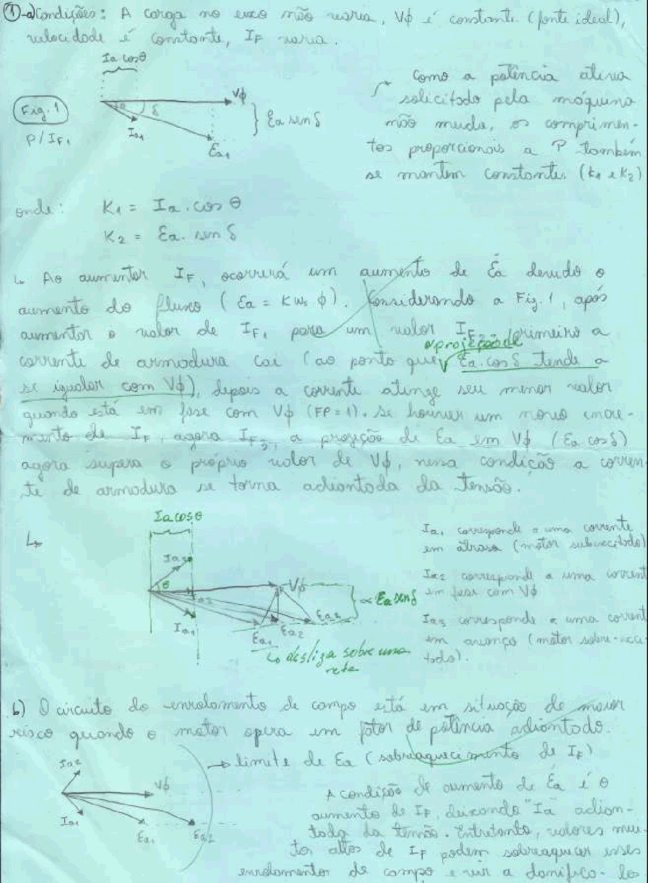 ①-a) Condições: A carga no eixo não varia, Vφ é constante (fonte ideal),
velocidade é constante, IF varia.
Ia cosθ
Vφ
θ
δ
Ia1
Ea1
Ea senδ
Fig. 1
P/ IF1
Como a potência ativa
solicitado pela máquina
não muda, os comprimen-
tos proporcionais a P também
se mantem constante. (K1 e K2)
onde: K1 = Ia. cos θ
K2 = Ea. sen δ
↳ Ao aumentar IF, ocorrerá um aumento de Ea devido o
aumento do fluxo (Ea = K ωs φ). Considerando a Fig. 1, após
aumentar o valor de IF1 para um valor IF2, primeiro a
a projeção de
corrente de armadura cai (ao ponto que Ea. cosδ tende a
se igualar com Vφ), depois a corrente atinge seu menor valor
quando está em fase com Vφ (FP=1). se houver um novo incre-
mento de IF, agora IF3, a projeção de Ea em Vφ (Ea cosδ)
agora supera o próprio valor de Vφ, nessa condição a corren-
te de armadura se torna adiantada da tensão.
↳
Ia cosθ
Ia3
θ
Ia2
Ia1
Vφ
Ea1
Ea2
Ea3
∝ Ea senδ
↳ desliza sobre uma
reta
Ia1 corresponde a uma corrente
em atraso (motor subexcitado)
Ia2 corresponde a uma corrent
em fase com Vφ
Ia3 corresponde a uma corrent
em avanço (motor sobre-exci-
tado).
b) O circuito do enrolamento de campo está em situação de maior
risco quando o motor opera em fator de potência adiantado.
→ limite de Ea (sobreaquecimento de IF)
Ia2
Vφ
Ia1
Ea1
Ea2
A condição de aumento de Ea é o
aumento de IF, deixando "Ia" adian-
tada da tensão. Entretanto, valores mui-
tos altos de IF podem sobreaquecer esses
enrolamentos de campo e vir a danifica-los